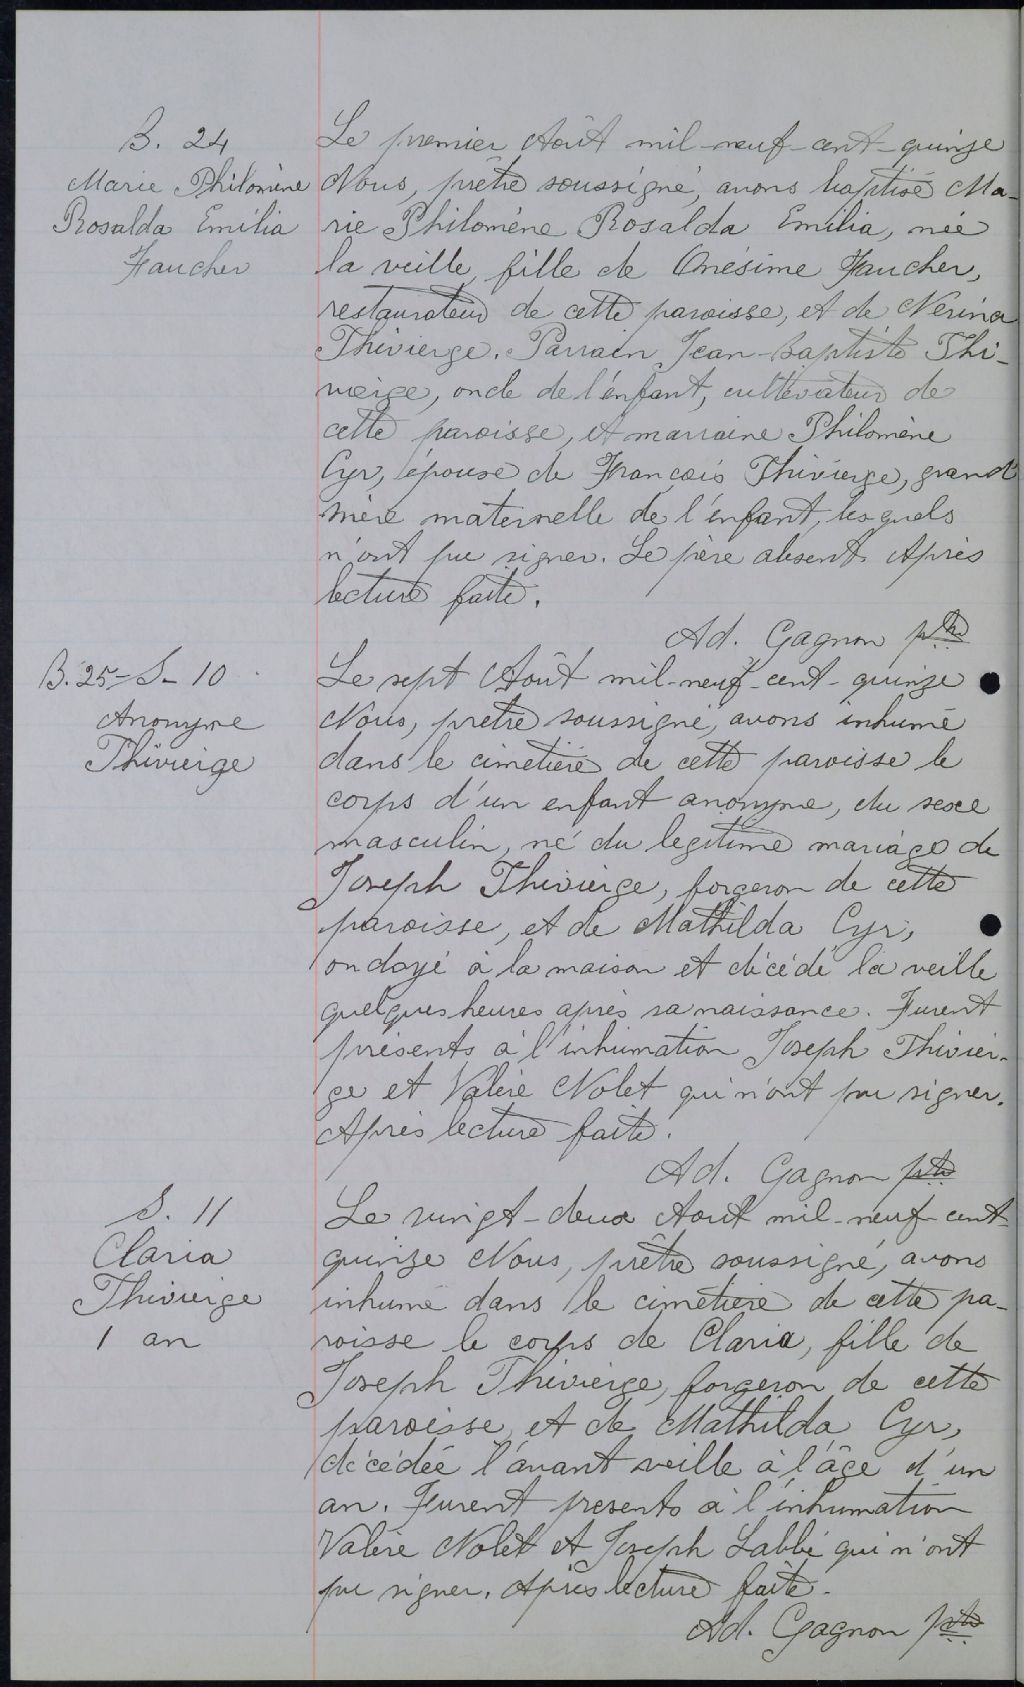 B. 24
Marie Philomène
Rosalda Emilia
Faucher
Le premier Août mil-neuf-cent-quinze
Nous, prêtre soussigné, avons baptisé Ma-
rie Philomène Rosalda Emilia, née
la veille, fille de Onésime Faucher,
restaurateur de cette paroisse, et de Nerina
Thivierge. Parrain Jean-Baptiste Thi-
vierge, oncle de l'enfant, cultivateur de
cette paroisse, et marraine Philomène
Cyr, épouse de François Thivierge, grand
mère maternelle de l'enfant, lesquels
n'ont pu signer. Le père absent. Après
lecture faite.
Ad. Gagnon ptre
B. 25-S-10
Anonyme
Thivierge
Le sept Août mil-neuf-cent-quinze
Nous, prêtre soussigné, avons inhumé
dans le cimetière de cette paroisse le
corps d'un enfant anonyme, du sexe
masculin, né du legitime mariage de
Joseph Thivierge, forgeron de cette
paroisse, et de Mathilda Cyr,
ondoyé à la maison et décédé la veille
quelques heures après sa naissance. Furent
présents à l'inhumation Joseph Thivier-
ge et Valère Nolet qui n'ont pu signer.
Après lecture faite.
Ad. Gagnon ptre
S. 11
Claria
Thivierge
1 an
Le vingt-deux Aout mil-neuf-cent-
quinze Nous, prêtre soussigné, avons
inhumé dans le cimetière de cette pa-
roisse le corps de Claria, fille de
Joseph Thivierge, forgeron de cette
paroisse, et de Mathilda Cyr,
décédée l'avant veille à l'âge d'un
an. Furent presents à l'inhumation
Valère Nolet et Joseph Labbé qui n'ont
pu signer. Après lecture faite.
Ad. Gagnon ptre